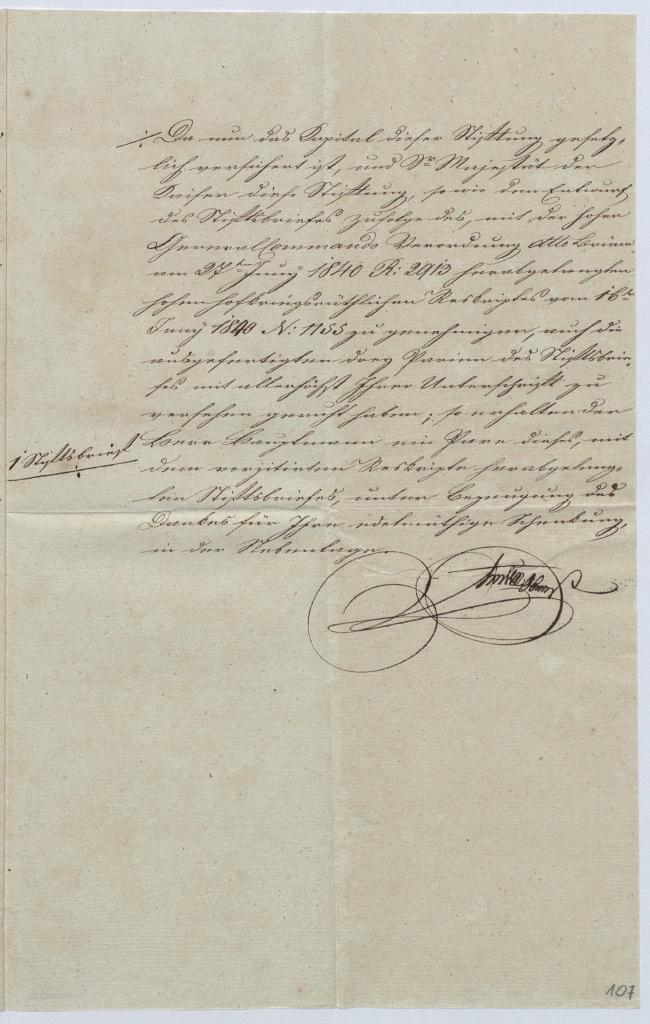 ⁒ Da nun das Kapital dieser Stiftung gesetz-
lich versichert ist, und Se Majestät der
Kaiser diese Stiftung, sowie den Entwurf
des Stiftsbriefes zufolge des, mit der hohen
General Commando Verordnung dtto Brünn
am 27ten Juny 1840 R: 2913 herabgelangten
hohen hofkriegsräthlichen Reskriptes vom 16ten
Juny 1840 N: 1155 zu genehmigen, auch die
ausgefertigten drey Parien des Stiftsbrie-
fes mit allerhöchst Ihrer Unterschrift zu
versehen geruht haben; so erhalten der
1 Stiftsbrief
Herr Hauptmann ein Pare dieses, mit
dem vorzitirten Reskripte herabgelang-
ten Stiftsbriefes, unter Bezeugung des
Dankes für Ihre edelmüthige Schenkung,
in der Nebenlage.
107